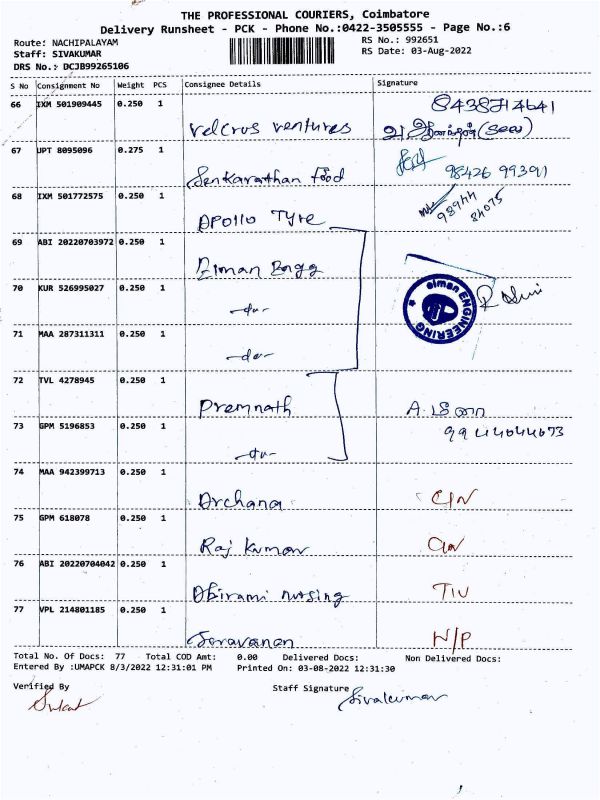 THE PROFESSIONAL COURIERS, Coimbatore
Delivery Runsheet - PCK - Phone No.:0422-3505555 - Page No.:6
Route: NACHIPALAYAM
RS No.: 992651
Staff: SIVAKUMAR
RS Date: 03-Aug-2022
DRS No.: DCJB99265106
S No Consignment No Weight PCS Consignee Details Signature
66 IXM 501909445 0.250 1 Velcros ventures
67 JPT 8095096 0.275 1 Senkarathan food 98426 99391
68 IXM 501772575 0.250 1 Apollo Tyre 98944 84075
69 ABI 20220703972 0.250 1 Elman Engg
70 KUR 526995027 0.250 1 -do-
elman ENGINEERING
71 MAA 287311311 0.250 1 -do-
72 TVL 4278945 0.250 1 Premnath
73 GPM 5196853 0.250 1 -do-
74 MAA 942399713 0.250 1 Archana
75 GPM 618078 0.250 1 Raj Kumar
76 ABI 20220704042 0.250 1 Abirami nursing
77 VPL 214801185 0.250 1 Saravanan N/P
Total No. Of Docs: 77 Total COD Amt: 0.00 Delivered Docs: Non Delivered Docs:
Entered By :UMAPCK 8/3/2022 12:31:01 PM Printed On: 03-08-2022 12:31:30
Verified By
Staff Signature Sivakumar